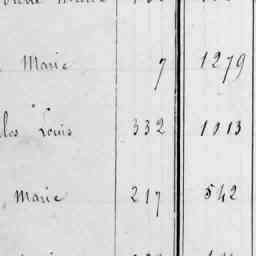 Marie 7 1279
les Louis 332 1013
Marie 217 542